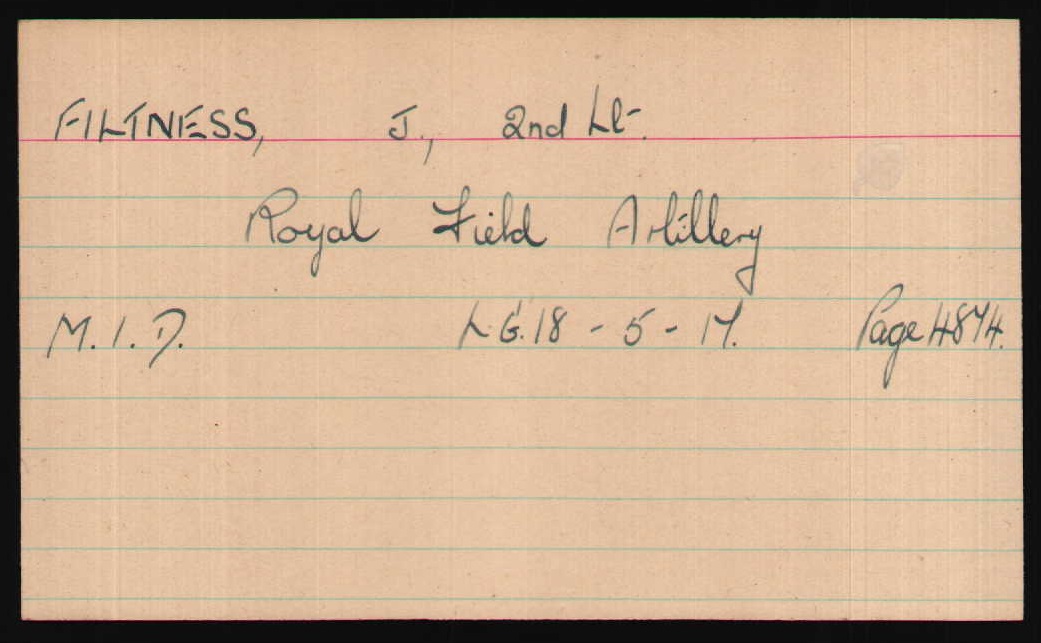 FILTNESS, J., 2nd Lt.
Royal Field Artillery
M.I.D. LG.18-5-17. Page 4874.